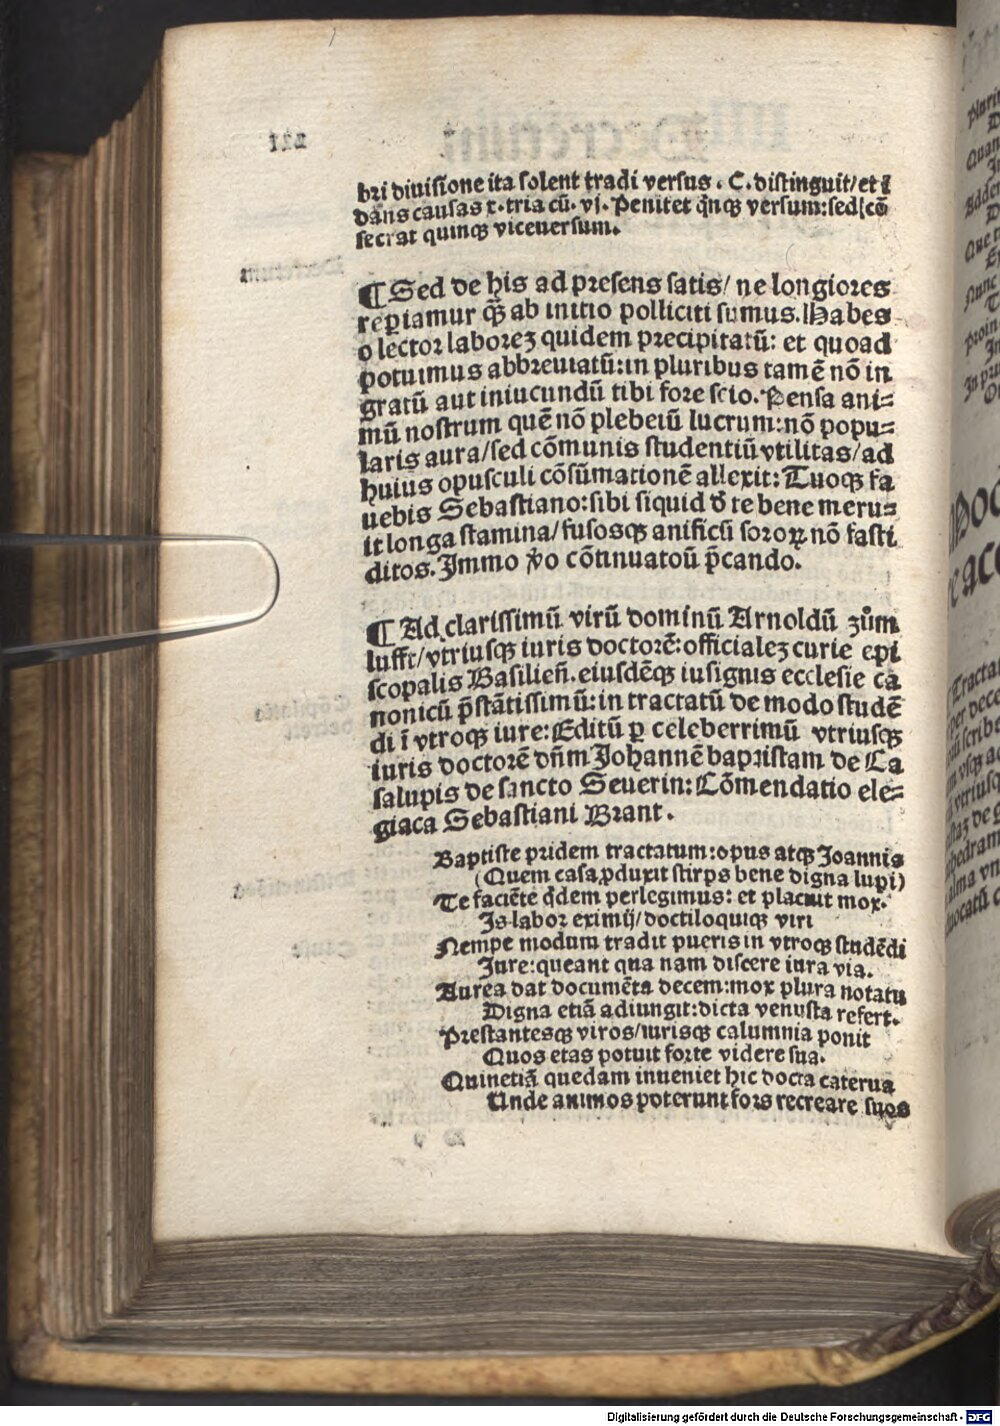 bri diuisione ita solent tradi versus. C. distinguit/et i
dans causas x. tria cũ. vj. Penitet qͥnqꝫ versum: sed cõ
secrat quinqꝫ viceuersum.
¶ Sed de his ad presens satis/ ne longiores
repiamur qꝫ ab initio polliciti sumus. Habes
o lector laboreꝫ quidem precipitatũ: et quoad
potuimus abbreuiatũ: in pluribus tamẽ nõ in
gratũ aut iniucundũ tibi fore scio. Pensa ani⸗
mũ nostrum quẽ nõ plebeiũ lucrum: nõ popu⸗
laris aura/ sed cõmunis studentiũ vtilitas/ ad
huius opusculi cõsũmationẽ allexit: Tuoqꝫ fa
uebis Sebastiano: sibi siquid d̕ te bene meru⸗
it longa stamina/ fusosqꝫ anificũ sororꝝ nõ fasti
ditos. Immo v̕o cõtinuatoũ p̃cando.
¶ Ad clarissimũ virũ dominũ Arnoldũ zům
lufft/ vtriusqꝫ iuris doctorẽ: officialeꝫ curie epi
scopalis Basilieñ. eiusdẽqꝫ iusignis ecclesie ca
nonicũ p̃stãtissimũ: in tractatũ de modo studẽ
di ĩ vtroqꝫ iure: Editũ ꝑ celeberrimũ vtriusqꝫ
iuris doctorẽ dñm Johannẽ baptistam de Ca
salupis de sancto Seuerin: Cõmendatio ele⸗
giaca Sebastiani Brant.
Baptiste pridem tractatum: opus atqꝫ Joannis
(Quem casa ꝓduxit stirps bene digna lupi)
Te faciẽte qͥdem perlegimus: et placuit mox.
Is labor eximij/ doctiloquiqꝫ viri
Nempe modum tradit pueris in vtroqꝫ studẽdi
Jure: queant qua nam discere iura via.
Aurea dat documẽta decem: mox plura notatu
Digna etiã adiungit: dicta venusta refert.
Prestantesqꝫ viros/ iurisqꝫ calumnia ponit
Quos etas potuit forte videre sua.
Quinetiã quedam inueniet hic docta caterua
Unde animos poterunt fors recreare suos
Digitalisierung gefördert durch die Deutsche Forschungsgemeinschaft - DFG